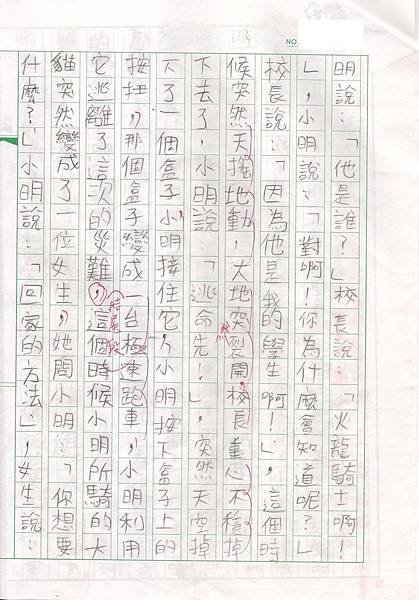 NO.
明說：「他是誰？」校長說：「火龍騎士啊！
」，小明說：「對啊！你為什麼會知道呢？」
校長說：「因為他是我的學生啊！」，這個時
候突然天搖地動，大地突裂開，校長重心不穩掉
下去了，小明說：「逃命先！」，突然天空掉
下了一個盒子，小明接住它，小明按下盒子上的
按扭，那個盒子變成一台極速跑車，小明利用
它逃離了這次的災難，這個時候小明所騎的大
貓突然變成了一位女生，她問小明：「你想要
什麼？」小明說：「回家的方法」，女生說：